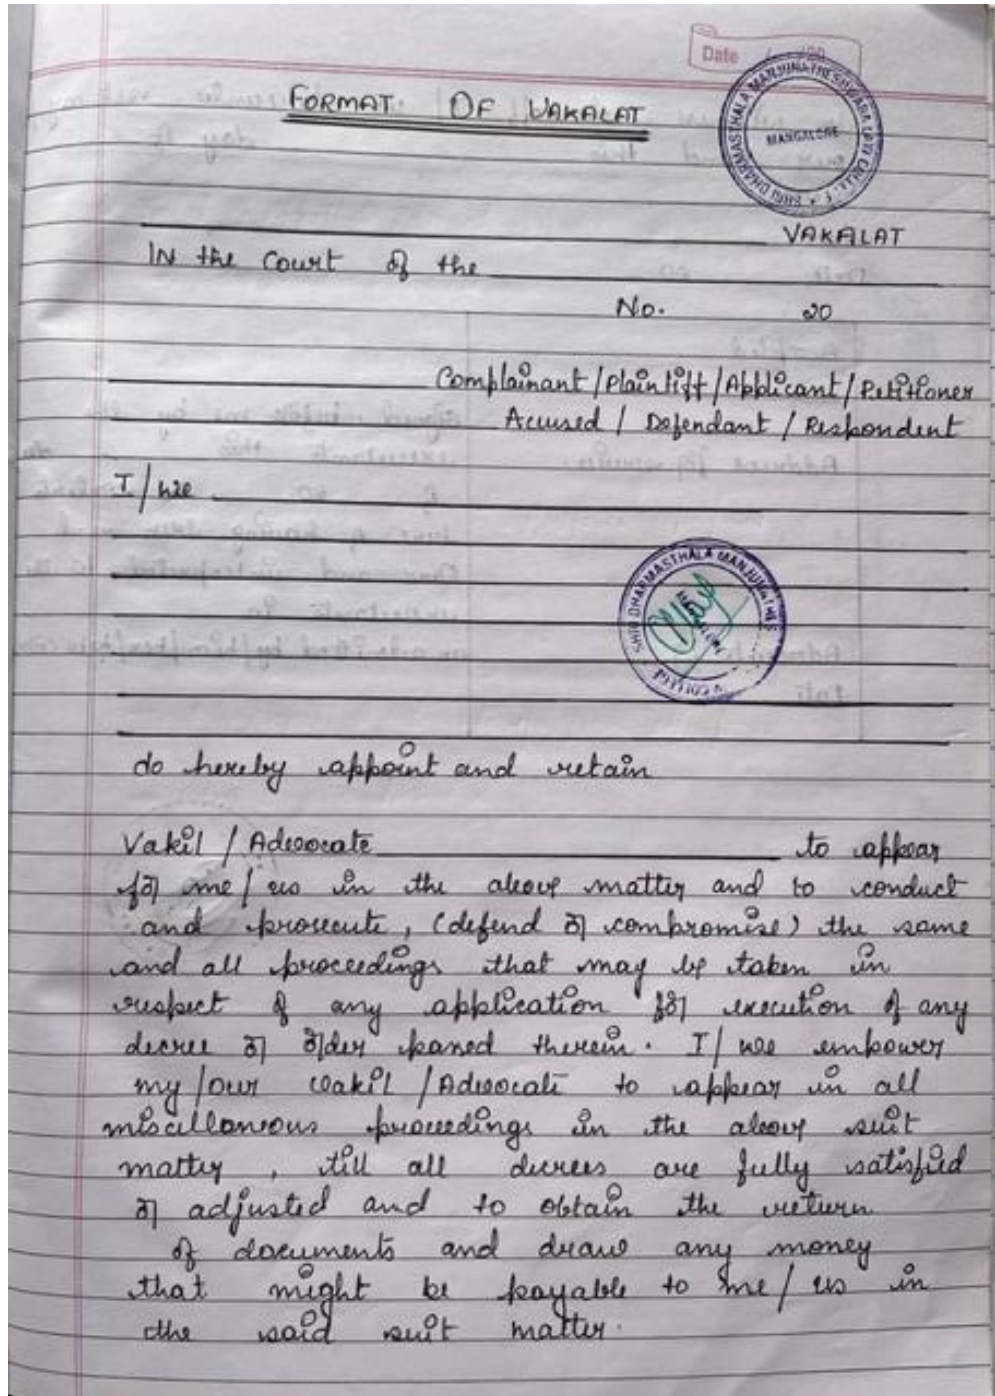 Date / /20
SHRI DHARMASTHALA MANJUNATHESHWARA LAW COLLEGE
MANGALORE
FORMAT OF VAKALAT
VAKALAT
IN the Court of the
No. 20
Complainant/Plaintiff/Applicant/Petitioner
Accused / Defendant / Respondent
I/we
SHRI DHARMASTHALA MANJUNATHES
do hereby appoint and retain
Vakil / Advocate to appear
for me/us in the above matter and to conduct
and prosecute, (defend or compromise) the same
and all proceedings that may be taken in
respect of any application for execution of any
decree or order passed therein. I/we empower
my/our vakil/Advocate to appear in all
miscellaneous proceedings in the above suit
matter, till all decrees are fully satisfied
or adjusted and to obtain the return
of documents and draw any money
that might be payable to me/us in
the said suit matter.